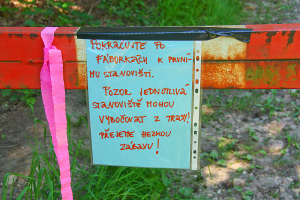 POKRAČUJTE PO
FÁBORKÁCH K PRVNÍ-
MU STANOVIŠTI.
POZOR JEDNOTLIVÁ
STANOVIŠTĚ MOHOU
VYBOČOVAT Z TRASY!
PŘEJEME HEZKOU
ZÁBAVU!